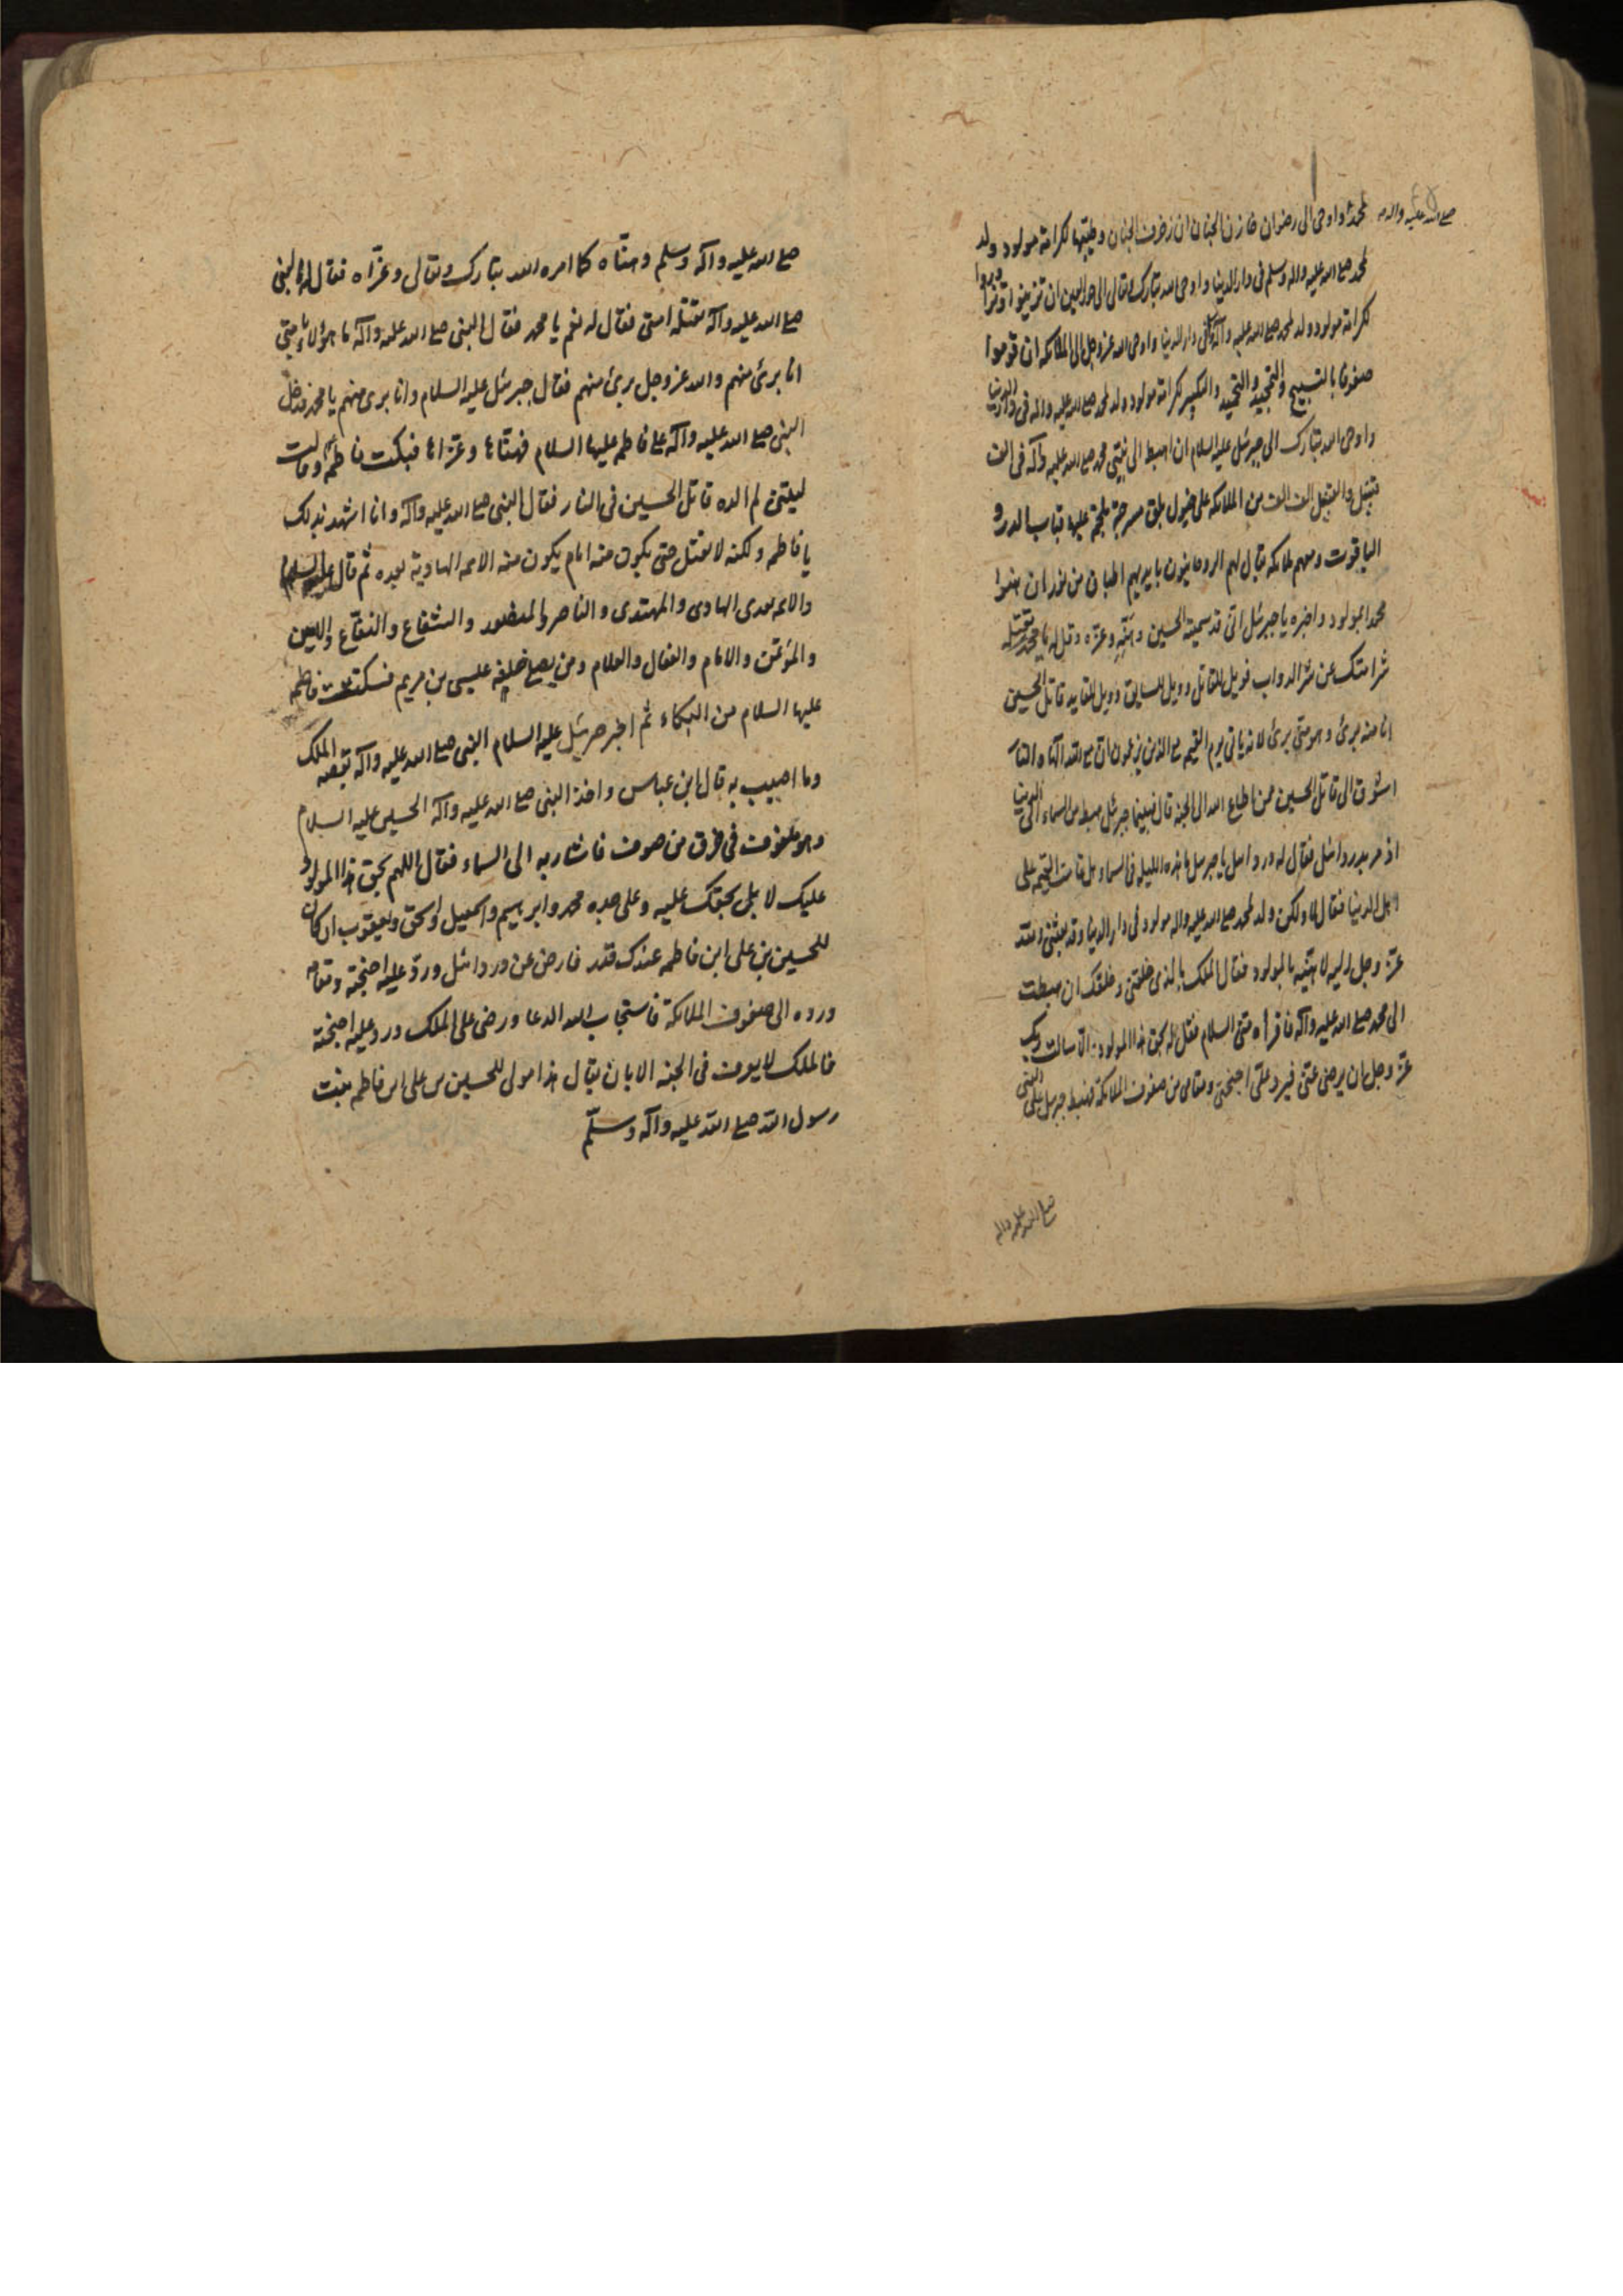 لمحمد واوحى الى رضوان خازن الجنان ان زخرف الجنان وطيبها لكرامة مولود ولد
صلى الله عليه واله
لمحمد صلى الله عليه واله وسلم فى دار الدنيا واوحى الله تبارك وتعالى الى حور العين ان تزينوا وتزاوروا
لكرامة مولود ولد لمحمد صلى الله عليه وآله فى دار الدنيا واوحى الله عز وجل الى الملائكه ان قوموا
صفوفا بالتسبيح والتمجيد والتحميد والتكبير لكرامة مولود ولد لمحمد صلى الله عليه واله فى دار الدنيا
واوحى الله تبارك الى جبرئيل عليه السلام ان اهبط الى نبيى محمد صلى الله عليه وآله فى الف
قبيل والقبيل الف الف من الملائكه على خيول بلق مسرجة ملجمة عليها قباب الدر و
الياقوت ومعهم ملائكه يقال لهم الروحانيون بايديهم اطباق من نور ان هنوا
محمدا بمولود واخبره يا جبرئيل انى قد سميته الحسين وهنئه وعزه وقل له يا محمد تقتله
شرار امتك على شر الدواب فويل للقاتل وويل للسايق وويل للقايد قاتل الحسين
انا منه برئ وهو منى برئ لانه ياتى يوم القيمه مع الذين يزعمون ان مع الله الها آخر والنار
اشوق الى قاتل الحسين ممن اطاع الله الى الجنة قال فبينما جبرئيل هبط من السماء الى الدنيا
اذ مر بدردائيل فقال له دردائيل يا جبرئيل ما هذه الليله فى السماء هل قامت القيمه على
اهل الدنيا فقال لا ولكن ولد لمحمد صلى الله عليه واله مولود فى دار الدنيا وقد بعثنى الله
عز وجل اليه لاهنئه بالمولود فقال الملك بالذى خلقنى وخلقك ان هبطت
الى محمد صلى الله عليه وآله فاقرأه منى السلام فقل له بحق هذا المولود الا سالت ربك
عز وجل ان يرضى عنى فيرد على اجنحتى ومقامى من صفوف الملائكة فهبط جبرئيل على النبى
صلى الله عليه واله
صلى الله عليه وآله وسلم وهناه كما امره الله تبارك وتعالى وعزاه فقال له النبى
صلى الله عليه وآله تقتله امتى فقال له نعم يا محمد فقال النبى صلى الله عليه وآله ما هؤلاء بامتى
انا برئ منهم والله عز وجل برئ منهم فقال جبرئيل عليه السلام وانا برى منهم يا محمد فدخل
النبى صلى الله عليه وآله على فاطمه عليها السلام فهناها وعزاها فبكت فاطمه وقالت
ليتنى لم الده قاتل الحسين فى النار فقال النبى صلى الله عليه وآله وانا اشهد بذلك
يا فاطمه ولكنه لا يقتل حتى يكون منه امام يكون منه الائمه الهادية بعده ثم قال عليه السلام
والائمه بعدى الهادى والمهتدى والناصر والمنصور والشفاع والنفاع والامين
والمؤتمن والامام والفعال والعلام ومن يصلى خلفه عيسى بن مريم فسكتت فاطمه
عليها السلام من البكاء ثم اخبر جبرئيل عليه السلام النبى صلى الله عليه وآله بقصه الملك
وما اصيب به قال ابن عباس واخذ النبى صلى الله عليه وآله الحسين عليه السلام
وهو ملفوف فى خرق من صوف فاشار به الى السماء فقال اللهم بحق هذا المولود
عليك لا بل بحقك عليه وعلى جده محمد وابرهيم واسمعيل واسحق ويعقوب ان كان
للحسين بن على ابن فاطمه عندك قدر فارض عن دردائيل ورد عليه اجنحته ومقامه
ورده الى صفوف الملائكة فاستجاب الله الدعا ورضى على الملك ورد عليه اجنحته
فالملك لا يعرف فى الجنه الا بان يقال هذا مولى للحسين بن على ابن فاطمه بنت
رسول الله صلى الله عليه وآله وسلم